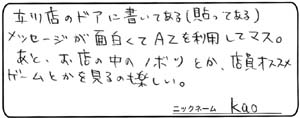 立川店のドアに書いてある(貼ってある)
メッセージが面白くてAZを利用してマス。
あと、お店の中のノボリとか、店員オススメ
ゲームとかを見るのも楽しい。
ニックネーム kao